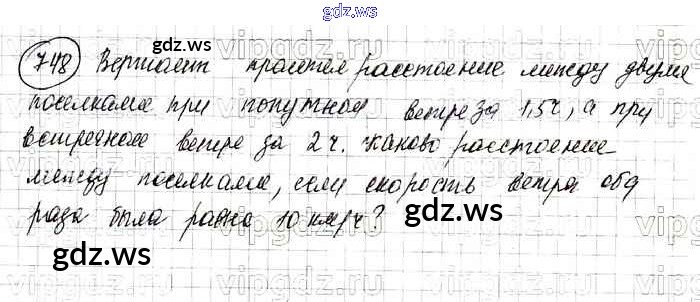 gdz.ws
748 Вертолёт пролетел расстояние между двумя
gdz.ws
поселками при попутном ветре за 1,5 ч, а при
встречном ветре за 2 ч. каково расстояние
между поселками, если скорость ветра оба
раза была равна 10 км/ч?
gdz.ws
gdz.ws